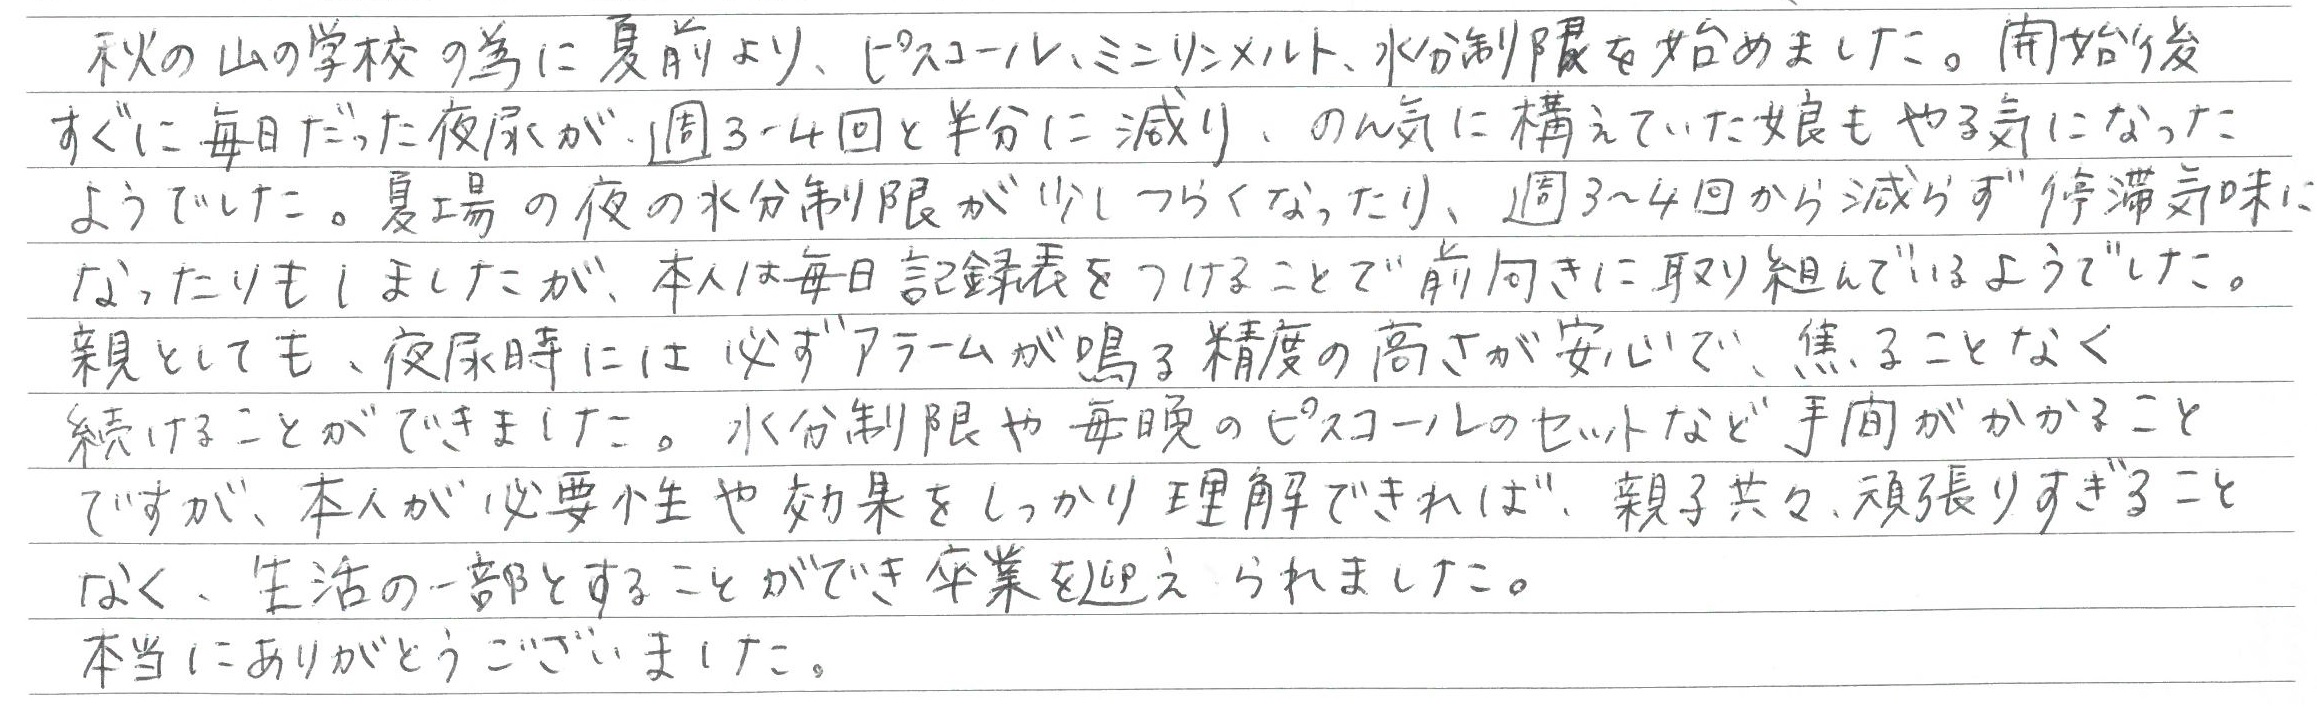 秋の山の学校の為に夏前より、ピスコール、ミニリンメルト、水分制限を始めました。開始後
すぐに毎日だった夜尿が、週3-4回と半分に減り、のん気に構えていた娘もやる気になった
ようでした。夏場の夜の水分制限が少しつらくなったり、週3~4回から減らず停滞気味に
なったりもしましたが、本人は毎日記録表をつけることで前向きに取り組んでいるようでした。
親としても、夜尿時には必ずアラームが鳴る精度の高さが安心で、焦ることなく
続けることができました。水分制限や毎晩のピスコールのセットなど手間がかかること
ですが、本人が必要性や効果をしっかり理解できれば、親子共々、頑張りすぎること
なく、生活の一部とすることができ卒業を迎えられました。
本当にありがとうございました。